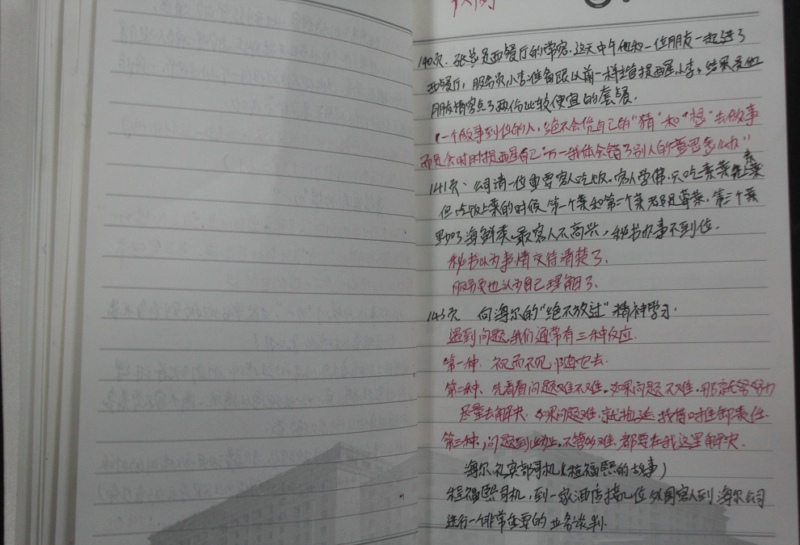 案例
140页、张总是西餐厅的常客、这天中午他和一位朋友一起进了
西餐厅，服务员小李准备跟以前一样 提醒 小李，结果是他
朋友请客点了两份比较便宜的套餐.
(一个做事到位的人，绝不会凭自己的"猜"和"想"去做事
而是会时时提醒自己"万一我体会错了别人的意思怎么办")
141页、公司请一位重要客人吃饭、客人学佛、只吃素菜
但点饭上菜的时候 第一个菜和第二个菜 荤菜、第三个菜
里 了海鲜类、最 客人不高兴，秘书办事不到位.
秘书以为事情交待清楚了、
服务员也认为自己理解了、
143页 向海尔的"绝不放过"精神学习.
遇到问题、我们通常有三种反应.
第一种、视而不见，随它去.
第二种、先看看问题难不难、如果问题不难、那就会努力
尽量去解决、如果问题难、就拖延 推卸责任
第三种、问题到此为止、不管多难、都要在我这里解决
海尔 部司机(程福熙的故事)
程福熙司机，到一家酒店接几位外国客人到海尔公司
进行一个非常重要的业务谈判.